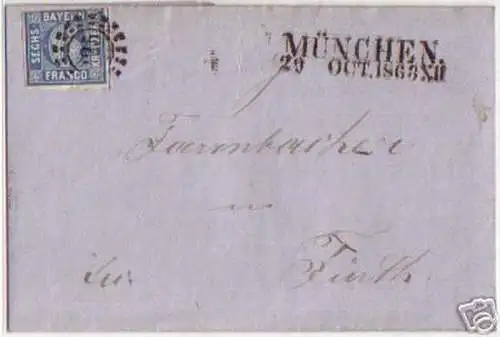 BAYERN
SECHS KREUZER
FRANCO
MÜNCHEN.
29 OCT.1863 XII
in
Fürth.
ebay